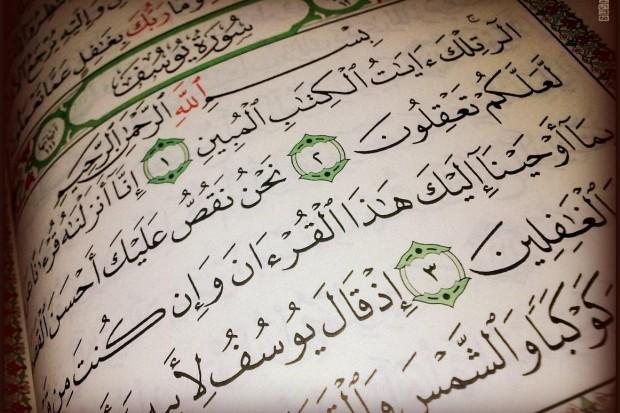 وَإِلَيْهِ يُرْجَعُ
وَمَا رَبُّكَ بِغَٰفِلٍ عَمَّا
سُورَةُ يُوسُفَ
بِسْمِ ٱللَّهِ ٱلرَّحْمَٰنِ ٱلرَّحِيمِ
الٓر ۚ تِلْكَ ءَايَٰتُ ٱلْكِتَٰبِ ٱلْمُبِينِ ١ إِنَّآ أَنزَلْنَٰهُ قُرْءَٰنًا
لَّعَلَّكُمْ تَعْقِلُونَ ٢ نَحْنُ نَقُصُّ عَلَيْكَ أَحْسَنَ
بِمَآ أَوْحَيْنَآ إِلَيْكَ هَٰذَا ٱلْقُرْءَانَ وَإِن كُنتَ مِن
ٱلْغَٰفِلِينَ ٣ إِذْ قَالَ يُوسُفُ
كَوْكَبًا وَٱلشَّمْسَ